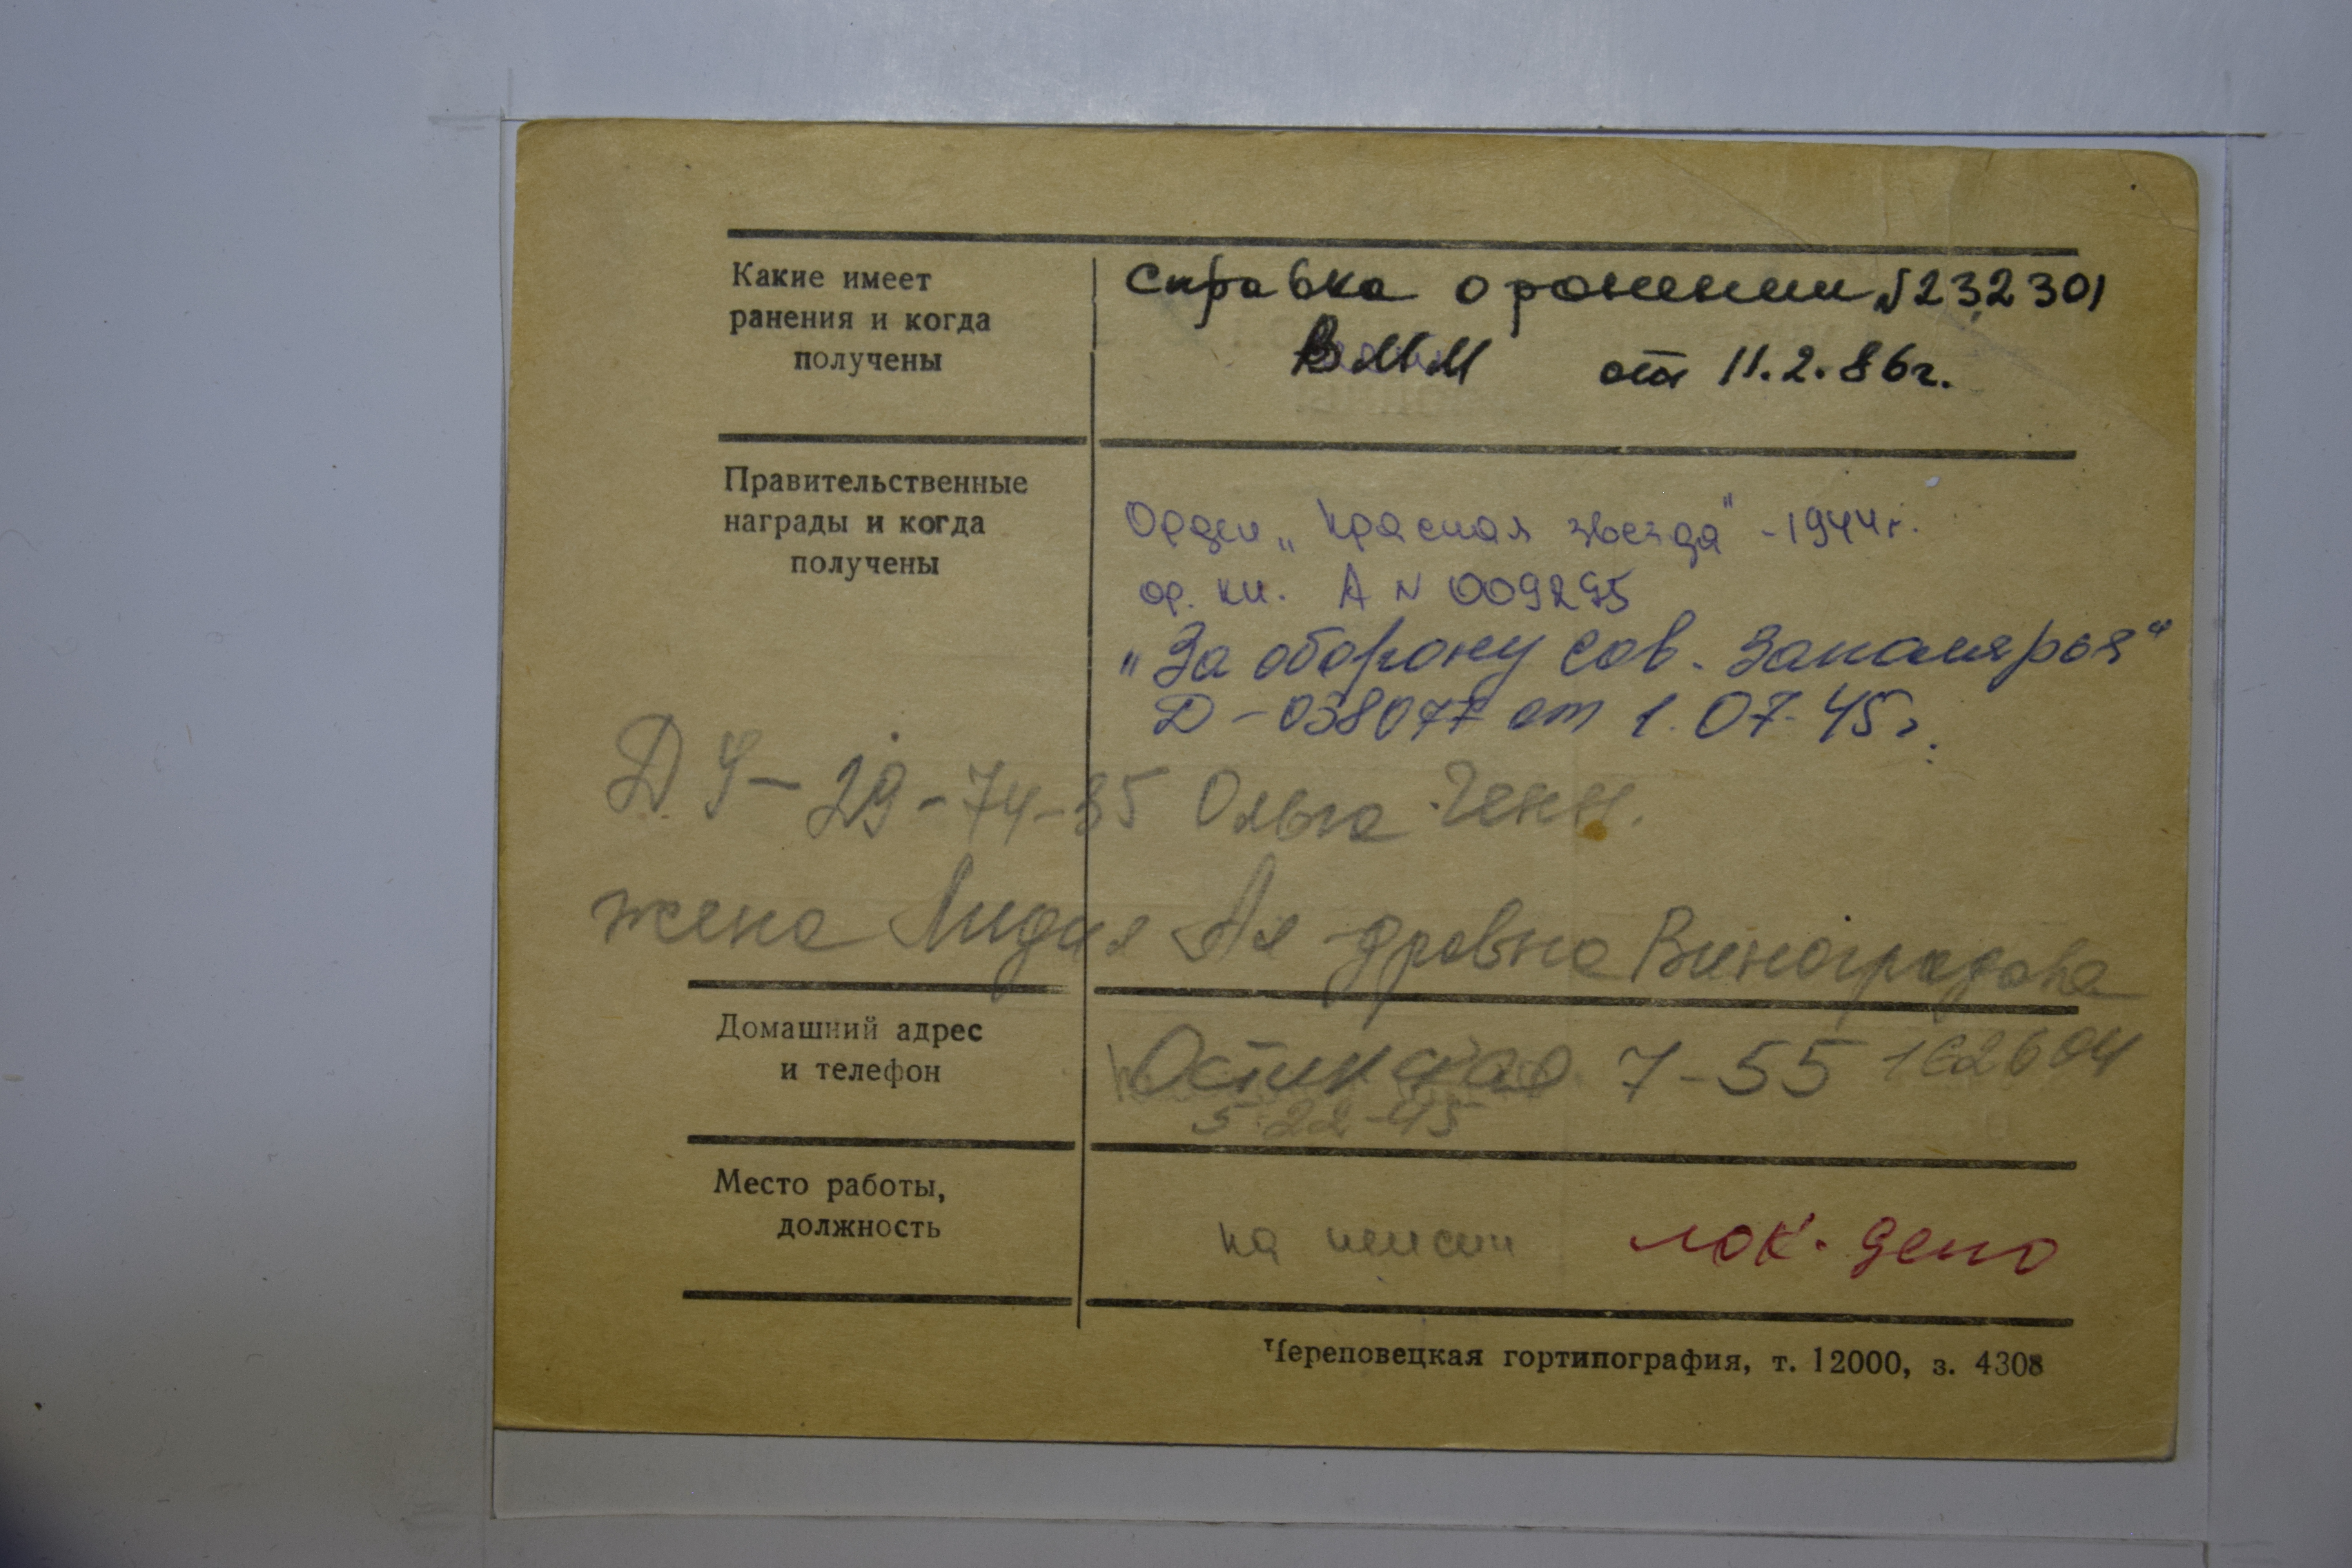 Какие имеет
ранения и когда
получены
Справка о ранении №232301
ВММ от 11.2.86г.
Правительственные
награды и когда
получены
Орден „Красная звезда" - 1944г.
ор. кн. А № 009295
„За оборону Сов. Заполярья"
Д - 038077 от 1.07.45г.
29-74-35 Ольга Генн.
жена Лидия Ал-дровна Виноградова
Домашний адрес
и телефон
7-55 162604
5-22-45
Место работы,
должность
на пенсии лок. депо
Череповецкая гортипография, т. 12000, з. 4308